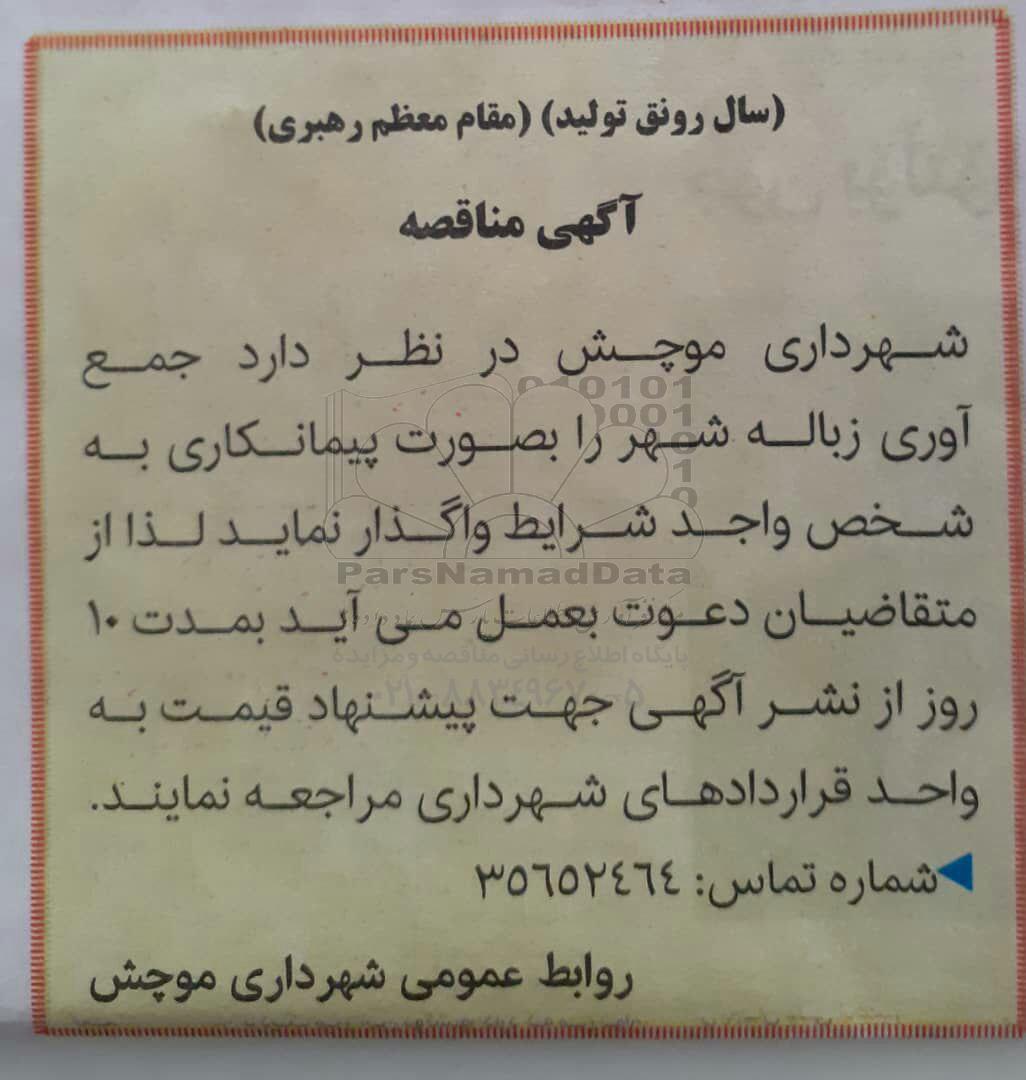 (سال رونق تولید) (مقام معظم رهبری)
آگهی مناقصه
شهرداری موچش در نظر دارد جمع
آوری زباله شهر را بصورت پیمانکاری به
شخص واجد شرایط واگذار نماید لذا از
متقاضیان دعوت بعمل می آید بمدت ۱۰
روز از نشر آگهی جهت پیشنهاد قیمت به
واحد قراردادهای شهرداری مراجعه نمایند.
شماره تماس: ۳۵٦۵۲٤٦٤
روابط عمومی شهرداری موچش
ParsNamadData
پایگاه اطلاع رسانی مناقصه و مزایده
۰۲۱-۸۸۳٤۹۶۷۰-۵